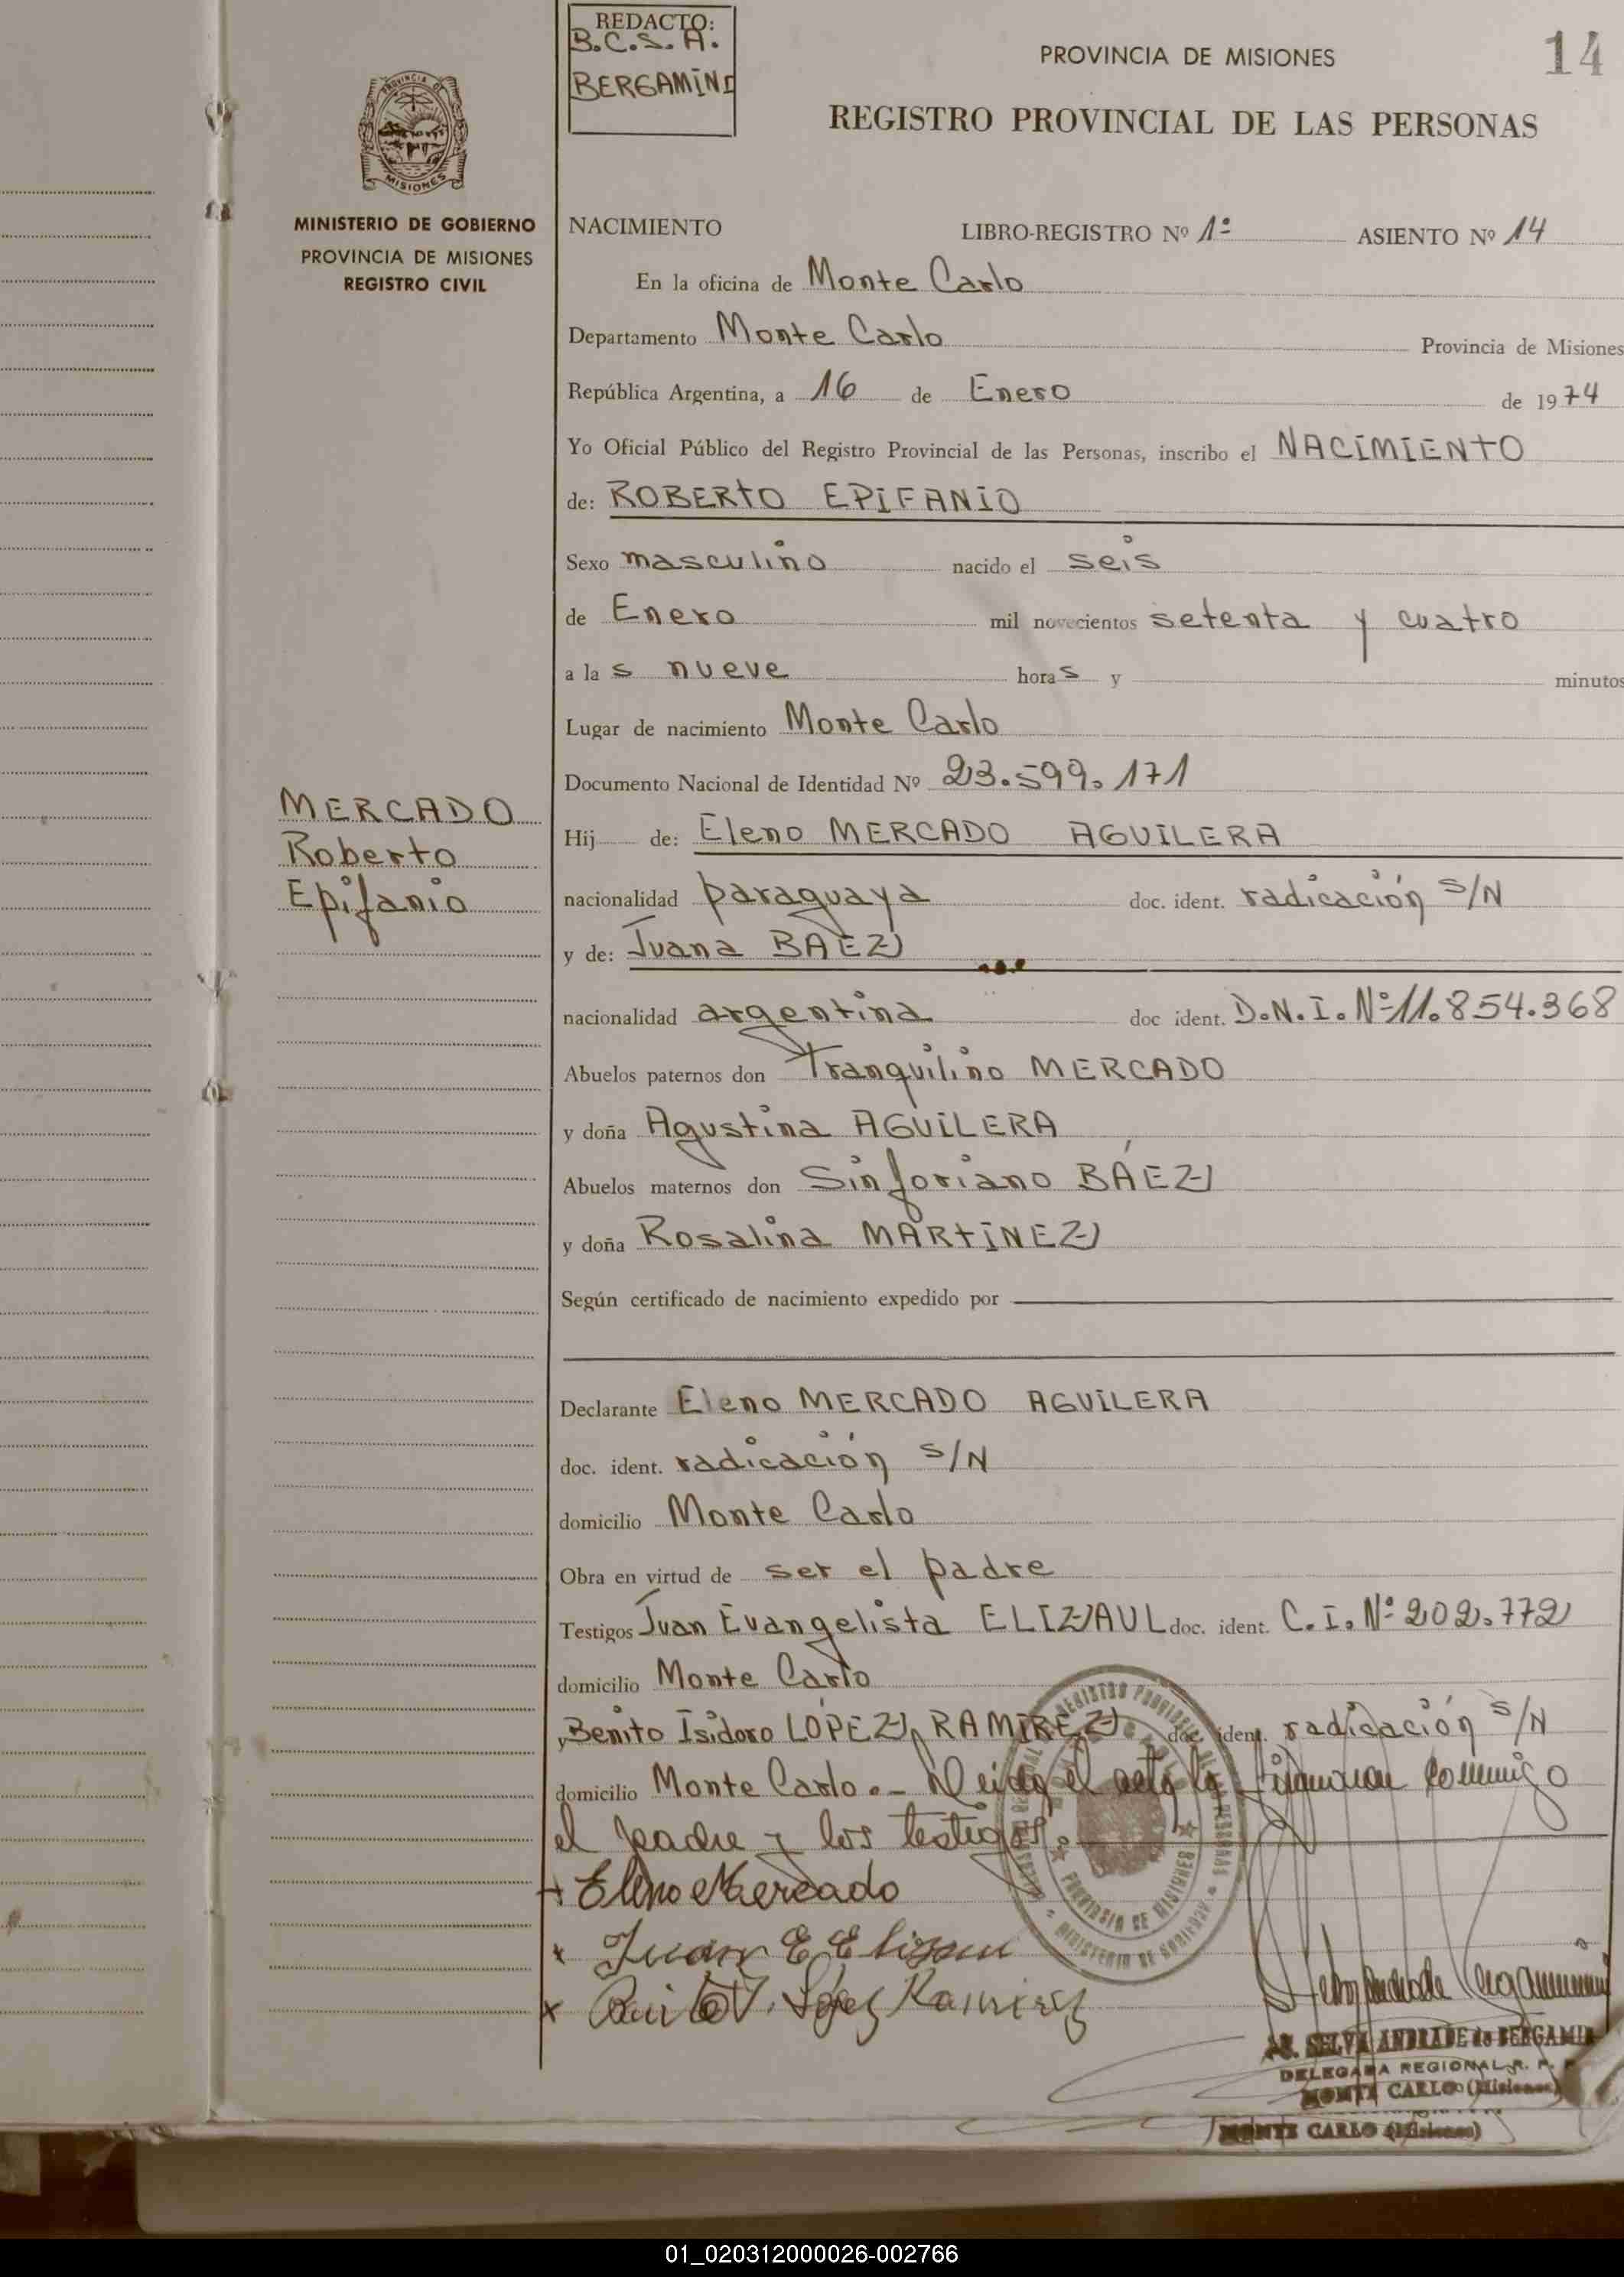 REDACTO:
B.C.S.A.
BERGAMINI
PROVINCIA DE MISIONES
14
REGISTRO PROVINCIAL DE LAS PERSONAS
PROVINCIA DE
MISIONES
MINISTERIO DE GOBIERNO
PROVINCIA DE MISIONES
REGISTRO CIVIL
NACIMIENTO LIBRO-REGISTRO Nº 1º ASIENTO Nº 14
En la oficina de Monte Carlo
Departamento Monte Carlo Provincia de Misiones
República Argentina, a 16 de Enero de 1974
Yo Oficial Público del Registro Provincial de las Personas, inscribo el NACIMIENTO
de: ROBERTO EPIFANIO
Sexo masculino nacido el seis
de Enero mil novecientos setenta y cuatro
a las nueve horas y minutos
Lugar de nacimiento Monte Carlo
Documento Nacional de Identidad Nº 23.599.171
MERCADO
Roberto
Epifanio
Hij de: Eleno MERCADO AGUILERA
nacionalidad paraguaya doc. ident. radicación S/N
y de: Juana BAEZ
nacionalidad argentina doc ident. D.N.I. Nº 11.854.368
Abuelos paternos don Tranquilino MERCADO
y doña Agustina AGUILERA
Abuelos maternos don Sinforiano BÁEZ
y doña Rosalina MARTINEZ
Según certificado de nacimiento expedido por
Declarante Eleno MERCADO AGUILERA
doc. ident. radicación S/N
domicilio Monte Carlo
Obra en virtud de ser el padre
Testigos Juan Evangelista ELIZAUL doc. ident. C.I. Nº 202.772
domicilio Monte Carlo
y Benito Isidoro LOPEZ RAMIREZ doc. ident. radicación S/N
domicilio Monte Carlo.- Leido el acta la firmaron conmigo
el padre y los testigos.
Eleno Mercado
Juan E
López Ramirez
SELVA ANDRADE de BERGAMINI
DELEGADA REGIONAL R. P.
MONTE CARLO (Misiones)
MONTE CARLO (Misiones)
01_020312000026-002766